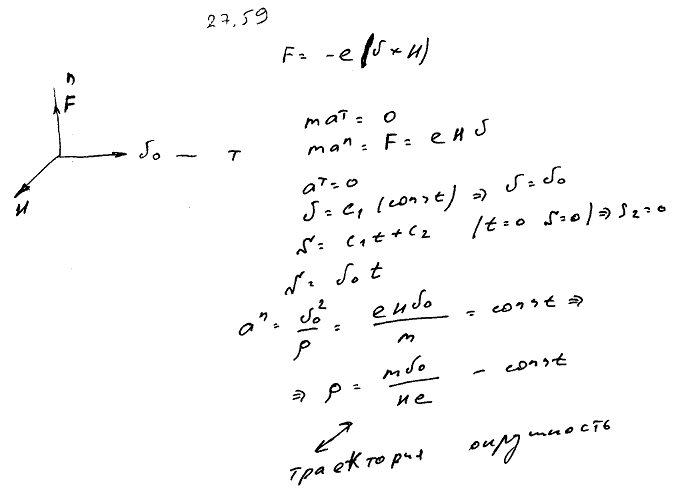 27.59
F = -e(v × H)
n
F
v₀ — τ
H
ma^τ = 0
ma^n = F = eHv
a^τ = 0
v = C₁ (const) ⇒ v = v₀
S = C₁t + C₂ (t=0 S=0) ⇒ S₂ = 0
S = v₀t
a^n = v₀²/ρ = eHv₀/m = const ⇒
⇒ ρ = mv₀/He - const
траектория окружность